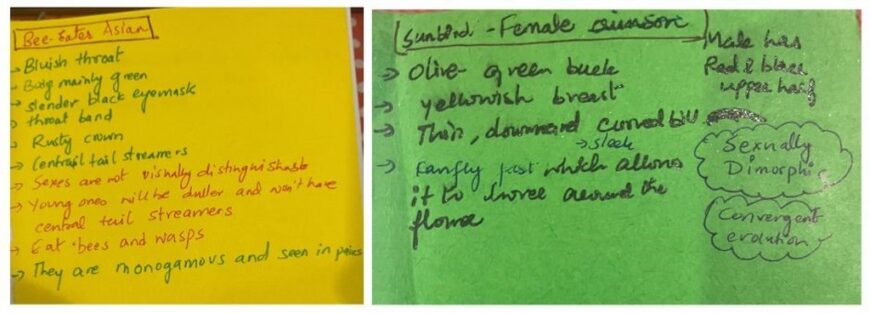 Bee-Eater Asian
→ Bluish throat
→ Body mainly green
→ slender black eyemask
→ throat band
→ Rusty crown
→ Central tail streamers
→ Sexes are not visually distinguishable
→ Young ones will be duller and won't have
central tail streamers
→ Eat bees and wasps
→ They are monogamous and seen in pairs
Sunbird - Female
→ Olive-green back
→ yellowish breast
→ Thin, downward curved bill
→ sleek
→ fast which allows
it to hover around the
Male has
Red & black
upper half
Sexually
Dimorphic
Convergent
evolution